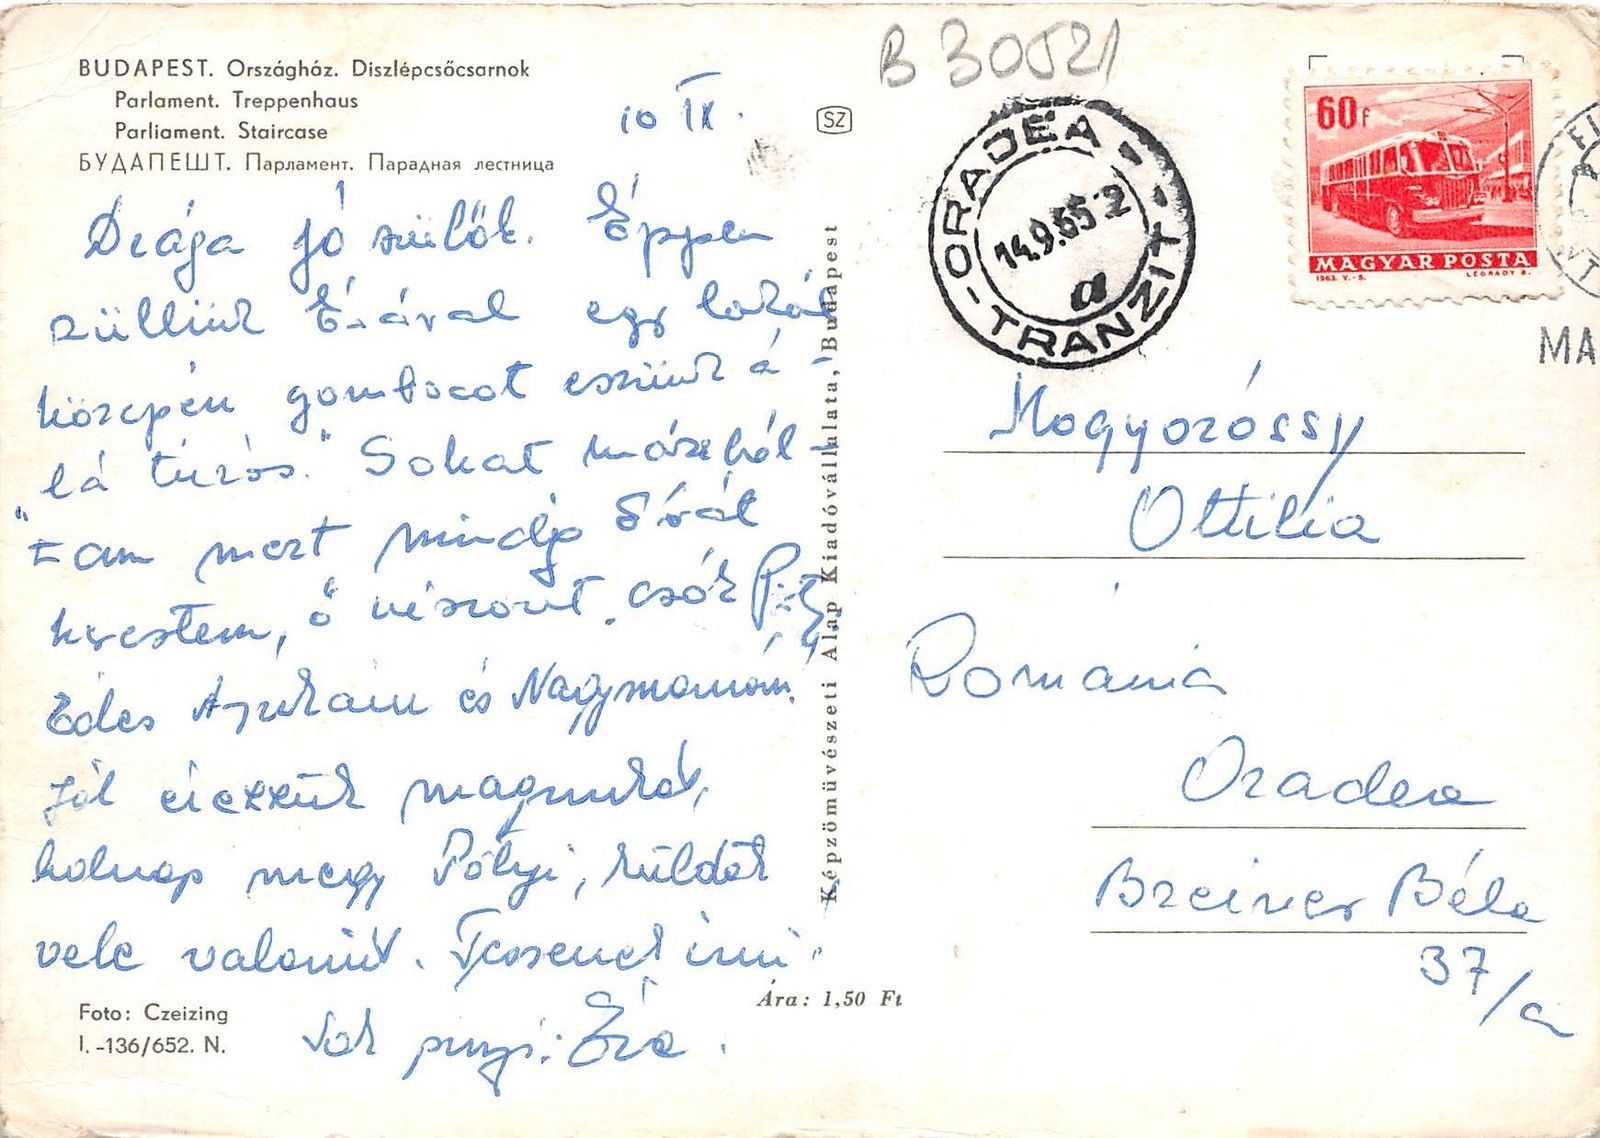 BUDAPEST. Országház. Díszlépcsőcsarnok
Parlament. Treppenhaus
Parliament. Staircase
БУДАПЕШТ. Парламент. Парадная лестница
10 IX.
SZ
Drága jó szülők. Éppen
szüllünk Évával egy lokál
közepén gombocot eszünk á -
"lá túrós." Sokat mászkál-
tam mert mindig Évát
kerestem, ő viszont. csók
Édes Apukám és Nagymamám,
Jól érezzük magunkat,
holnap megy Pólyi, küldök
vele valamit. Tessenek írni.
Sok puszi: Éva.
Foto: Czeizing
I.-136/652. N.
Képzőművészeti Alap Kiadóvállalata, Budapest
Ára: 1,50 Ft
B 30521
ORADEA
14.9.65-2
a
TRANZIT
60f
MAGYAR POSTA
1963. V.-S. LÉGRÁDY S.
MA
Mogyoróssy
Ottilia
Románia
Oradea
Breiner Béla
37/a